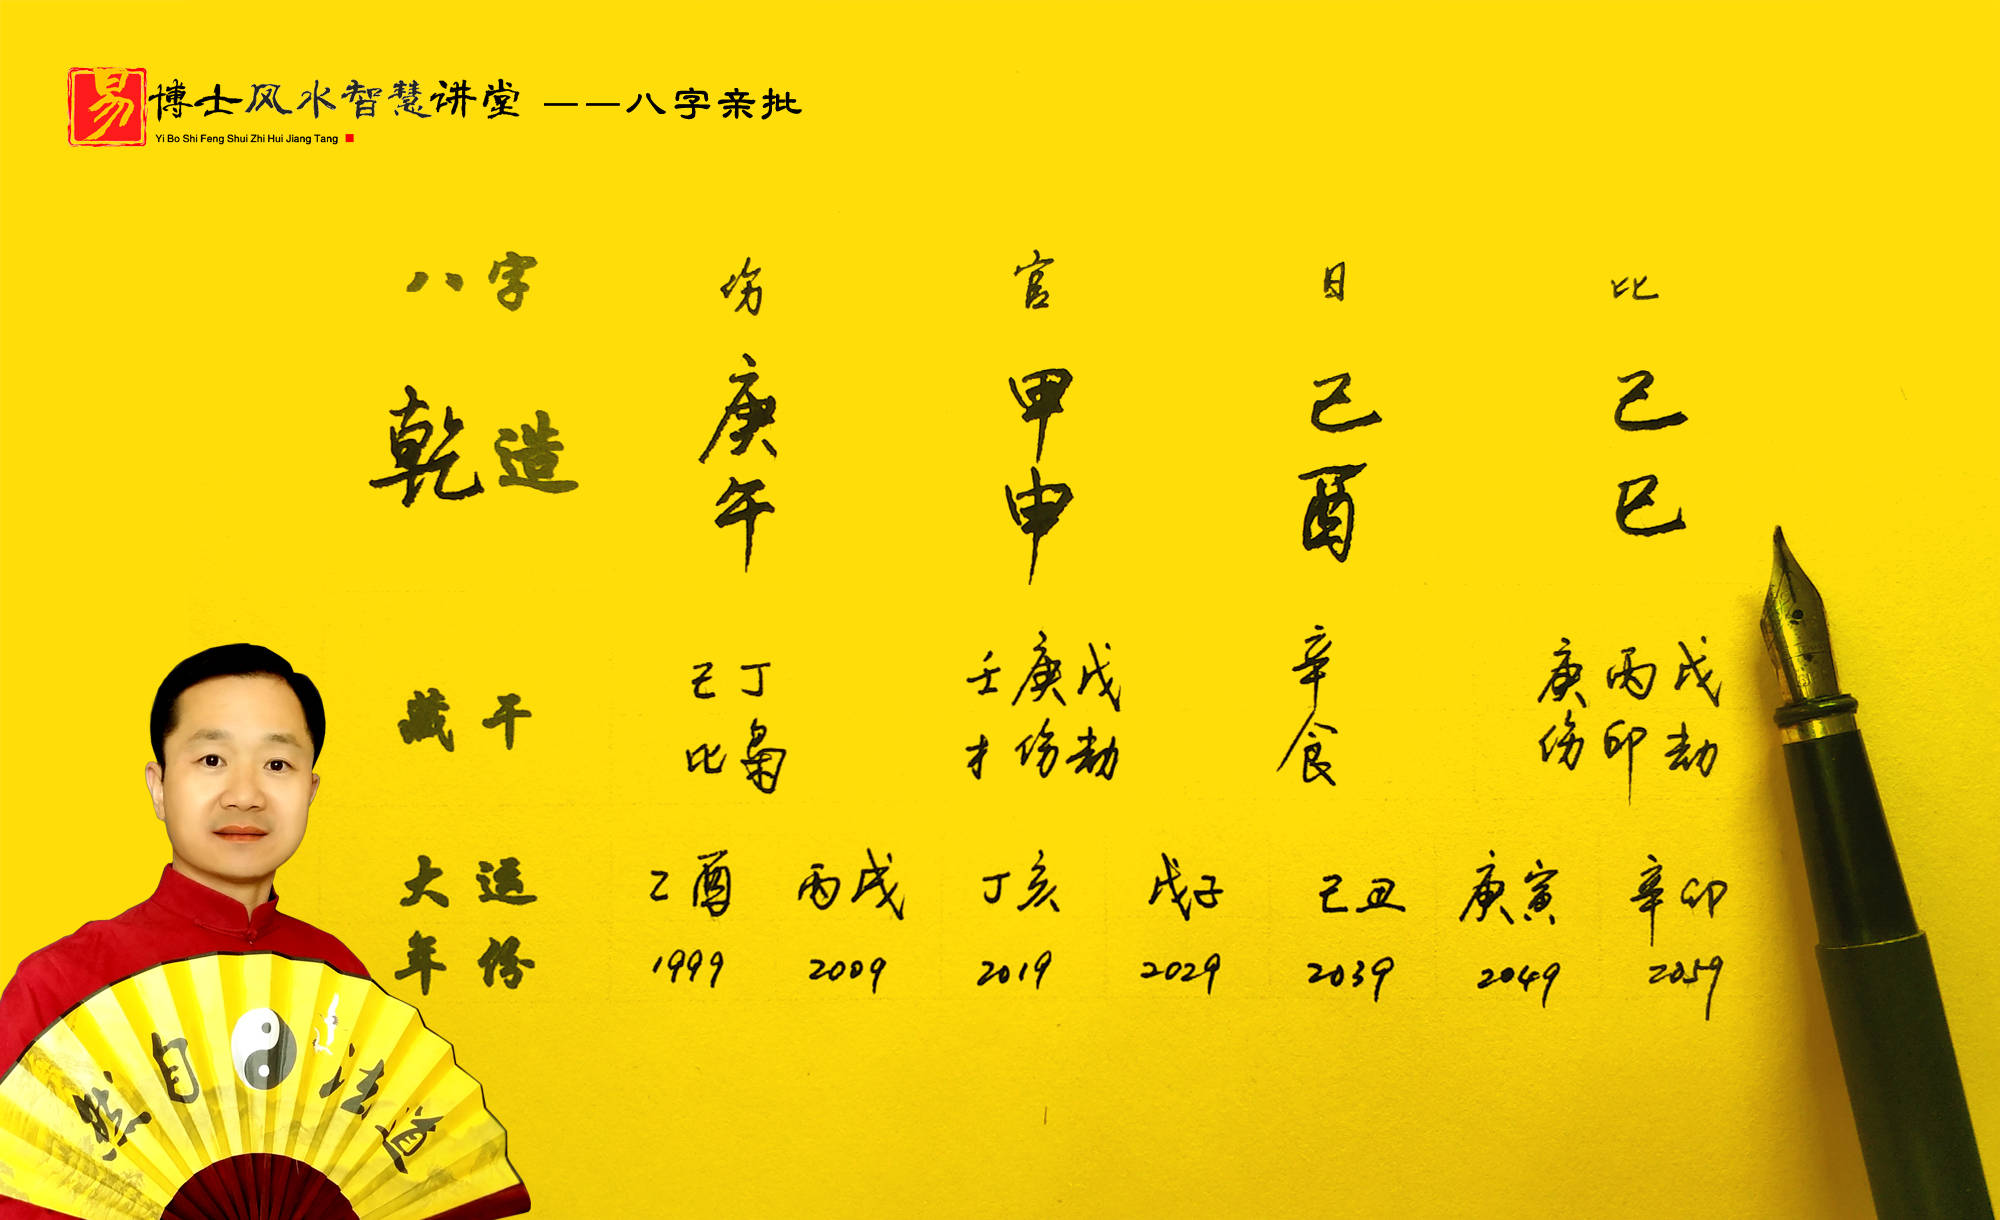 易 博士风水智慧讲堂 ——八字亲批
Yi Bo Shi Feng Shui Zhi Hui Jiang Tang
八字 伤 官 日 比
乾造 庚 甲 己 己
午 申 酉 巳
藏干 己丁 壬庚戊 辛 庚丙戊
比枭 才伤劫 食 伤印劫
大运 乙酉 丙戌 丁亥 戊子 己丑 庚寅 辛卯
年份 1999 2009 2019 2029 2039 2049 2059
然自法道